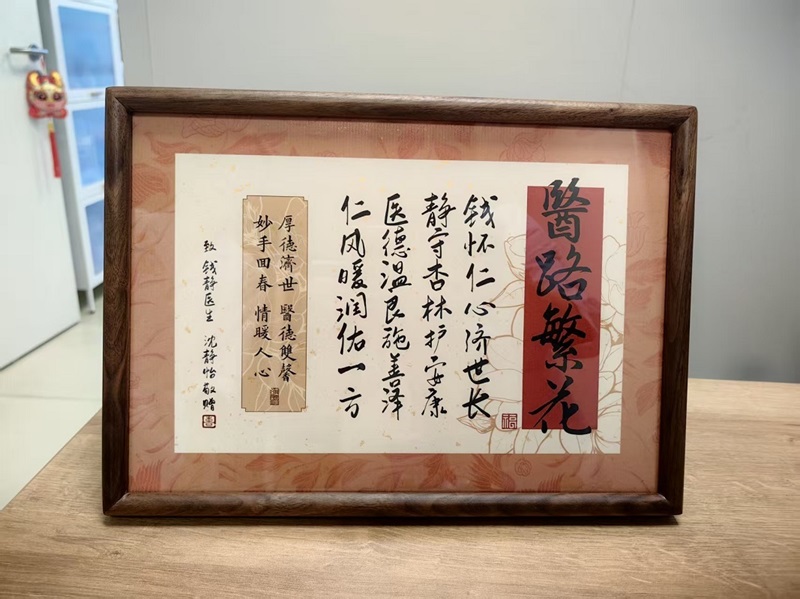 醫路繁花
钱怀仁心济世长
静守杏林护安康
医德温良施善泽
仁风暖润佑一方
厚德濟世 醫德雙馨
妙手回春 情暖人心
致 钱静医生 沈静怡敬赠
福